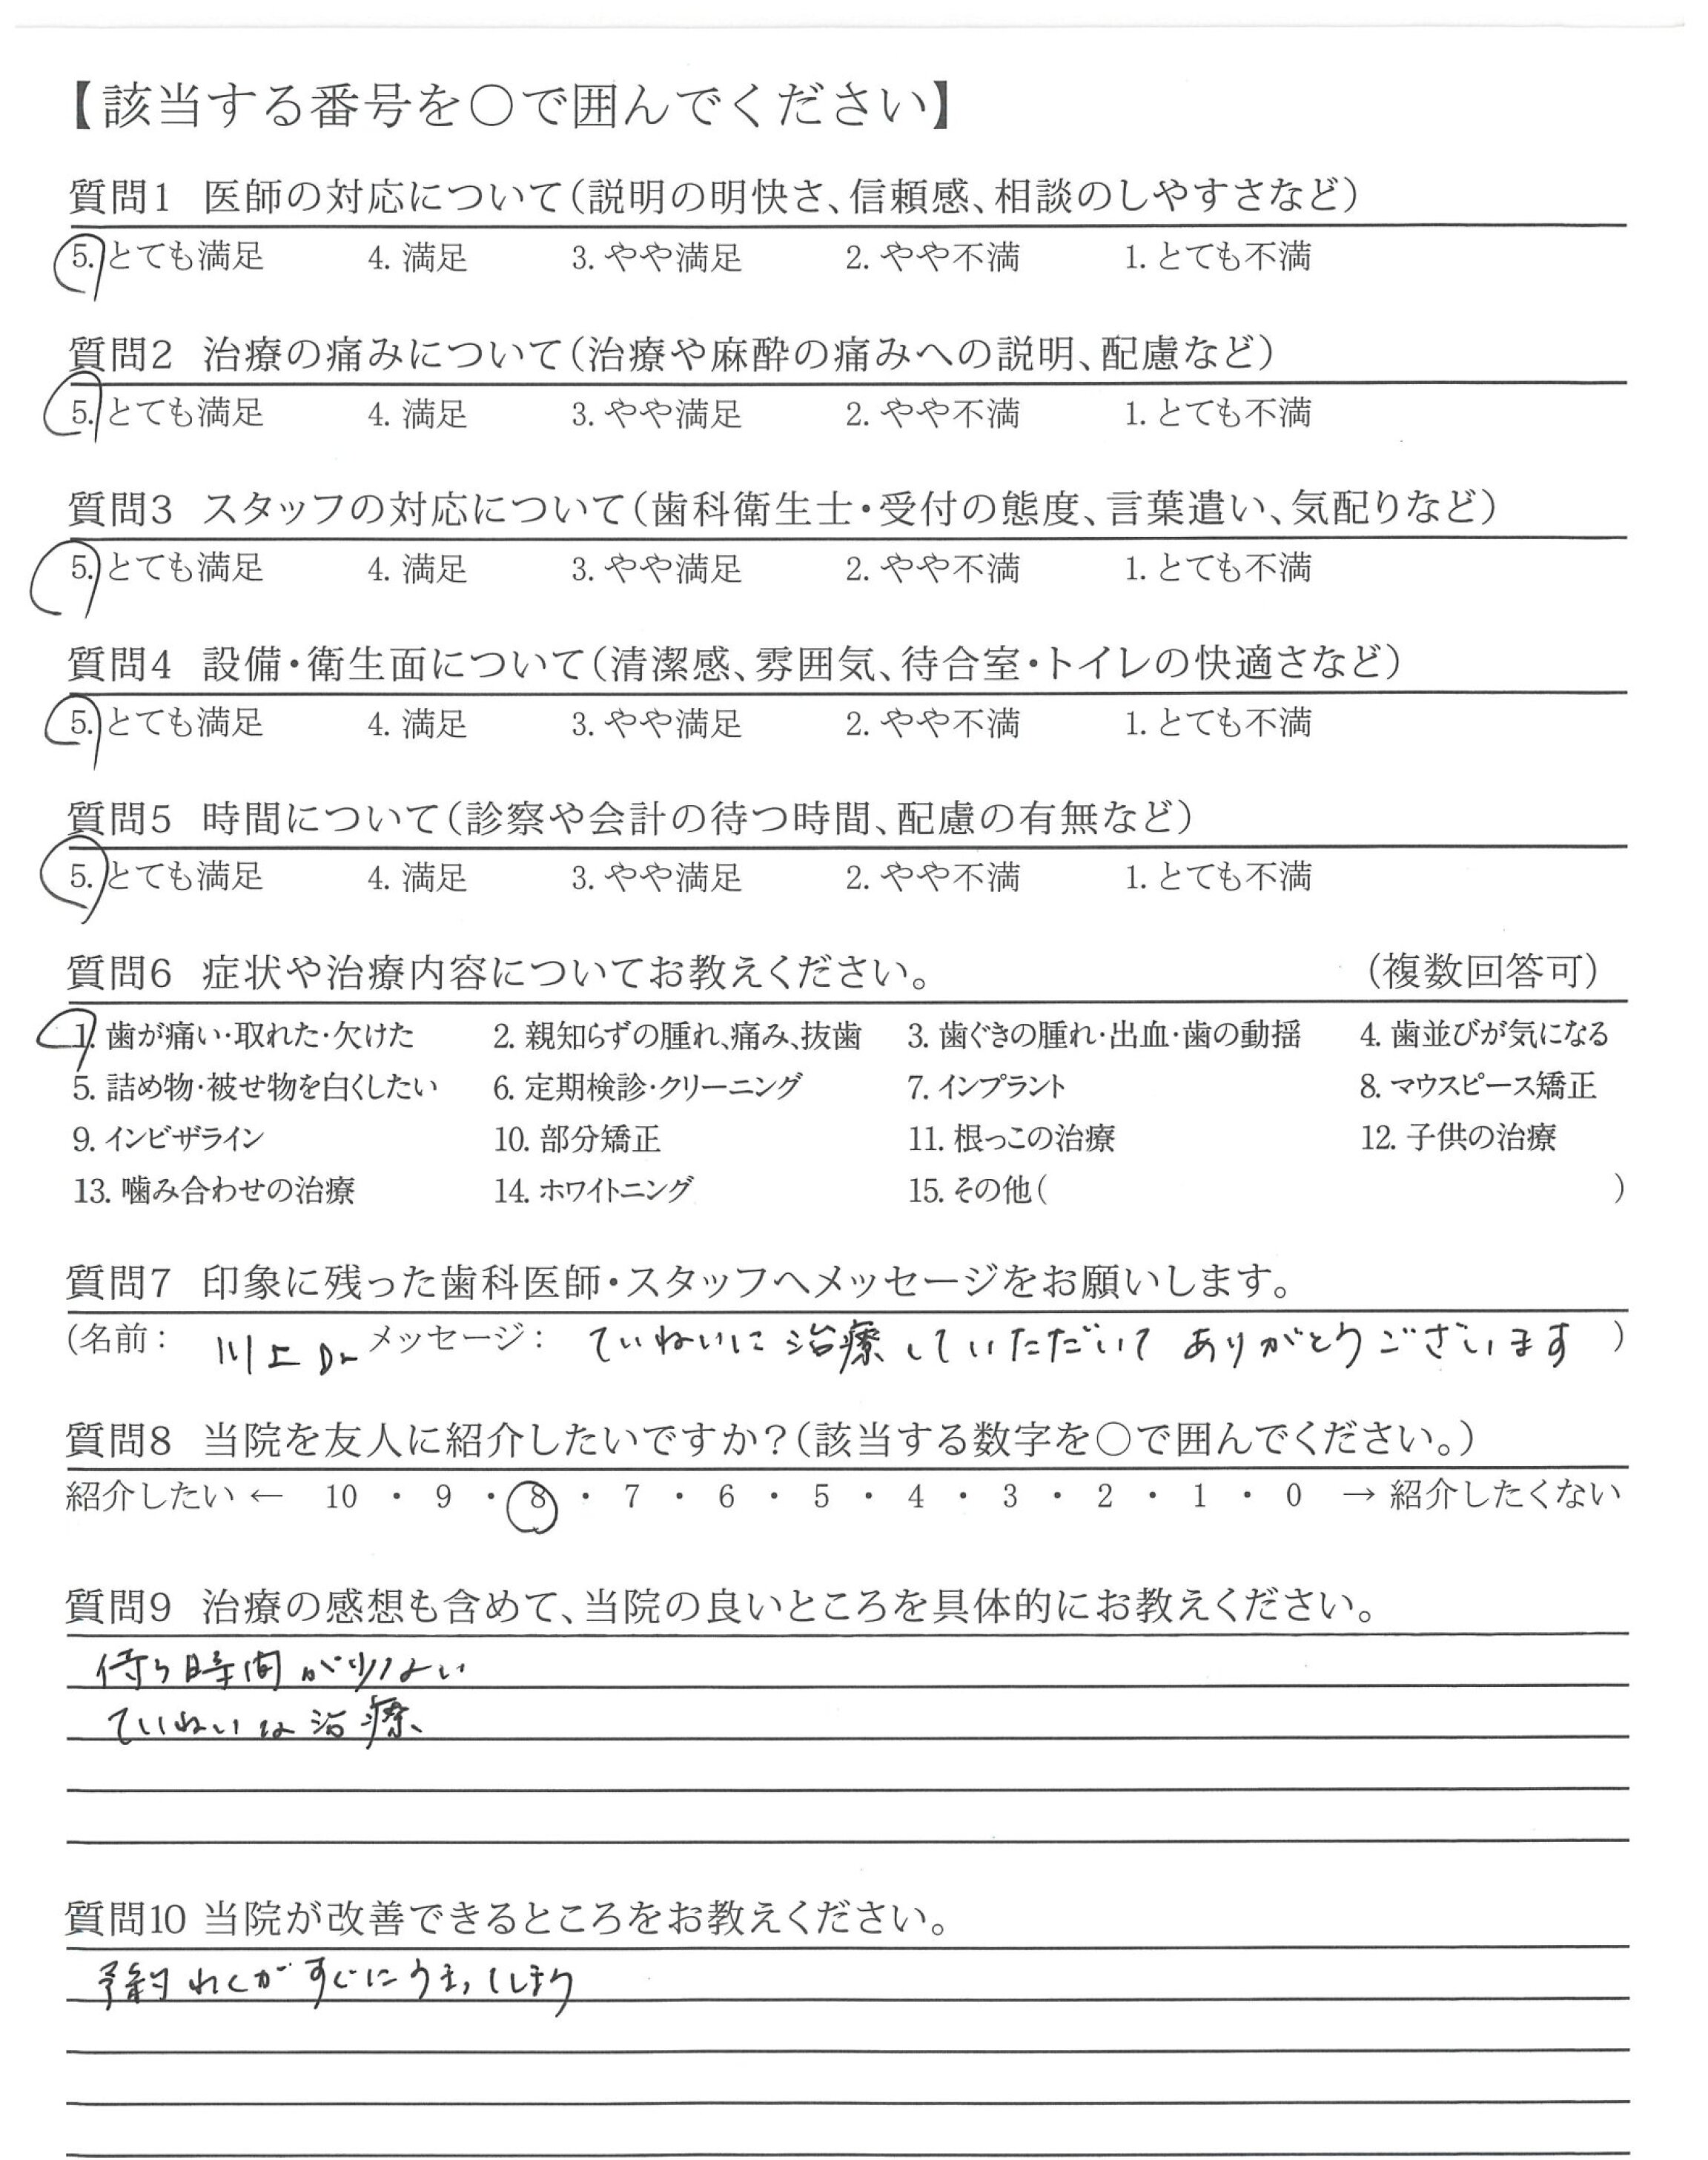 【該当する番号を〇で囲んでください】
質問1 医師の対応について(説明の明快さ、信頼感、相談のしやすさなど)
5. とても満足 4. 満足 3. やや満足 2. やや不満 1. とても不満
質問2 治療の痛みについて(治療や麻酔の痛みへの説明、配慮など)
5. とても満足 4. 満足 3. やや満足 2. やや不満 1. とても不満
質問3 スタッフの対応について(歯科衛生士・受付の態度、言葉遣い、気配りなど)
5. とても満足 4. 満足 3. やや満足 2. やや不満 1. とても不満
質問4 設備・衛生面について(清潔感、雰囲気、待合室・トイレの快適さなど)
5. とても満足 4. 満足 3. やや満足 2. やや不満 1. とても不満
質問5 時間について(診察や会計の待つ時間、配慮の有無など)
5. とても満足 4. 満足 3. やや満足 2. やや不満 1. とても不満
質問6 症状や治療内容についてお教えください。 (複数回答可)
1. 歯が痛い・取れた・欠けた 2. 親知らずの腫れ、痛み、抜歯 3. 歯ぐきの腫れ・出血・歯の動揺 4. 歯並びが気になる
5. 詰め物・被せ物を白くしたい 6. 定期検診・クリーニング 7. インプラント 8. マウスピース矯正
9. インビザライン 10. 部分矯正 11. 根っこの治療 12. 子供の治療
13. 噛み合わせの治療 14. ホワイトニング 15. その他( )
質問7 印象に残った歯科医師・スタッフへメッセージをお願いします。
(名前: 川上Dr メッセージ: ていねいに治療していただいてありがとうございます )
質問8 当院を友人に紹介したいですか?(該当する数字を〇で囲んでください。)
紹介したい ← 10 ・ 9 ・ 8 ・ 7 ・ 6 ・ 5 ・ 4 ・ 3 ・ 2 ・ 1 ・ 0 → 紹介したくない
質問9 治療の感想も含めて、当院の良いところを具体的にお教えください。
待ち時間が少ない
ていねいな治療
質問10 当院が改善できるところをお教えください。
予約わくがすぐにうまってしまう